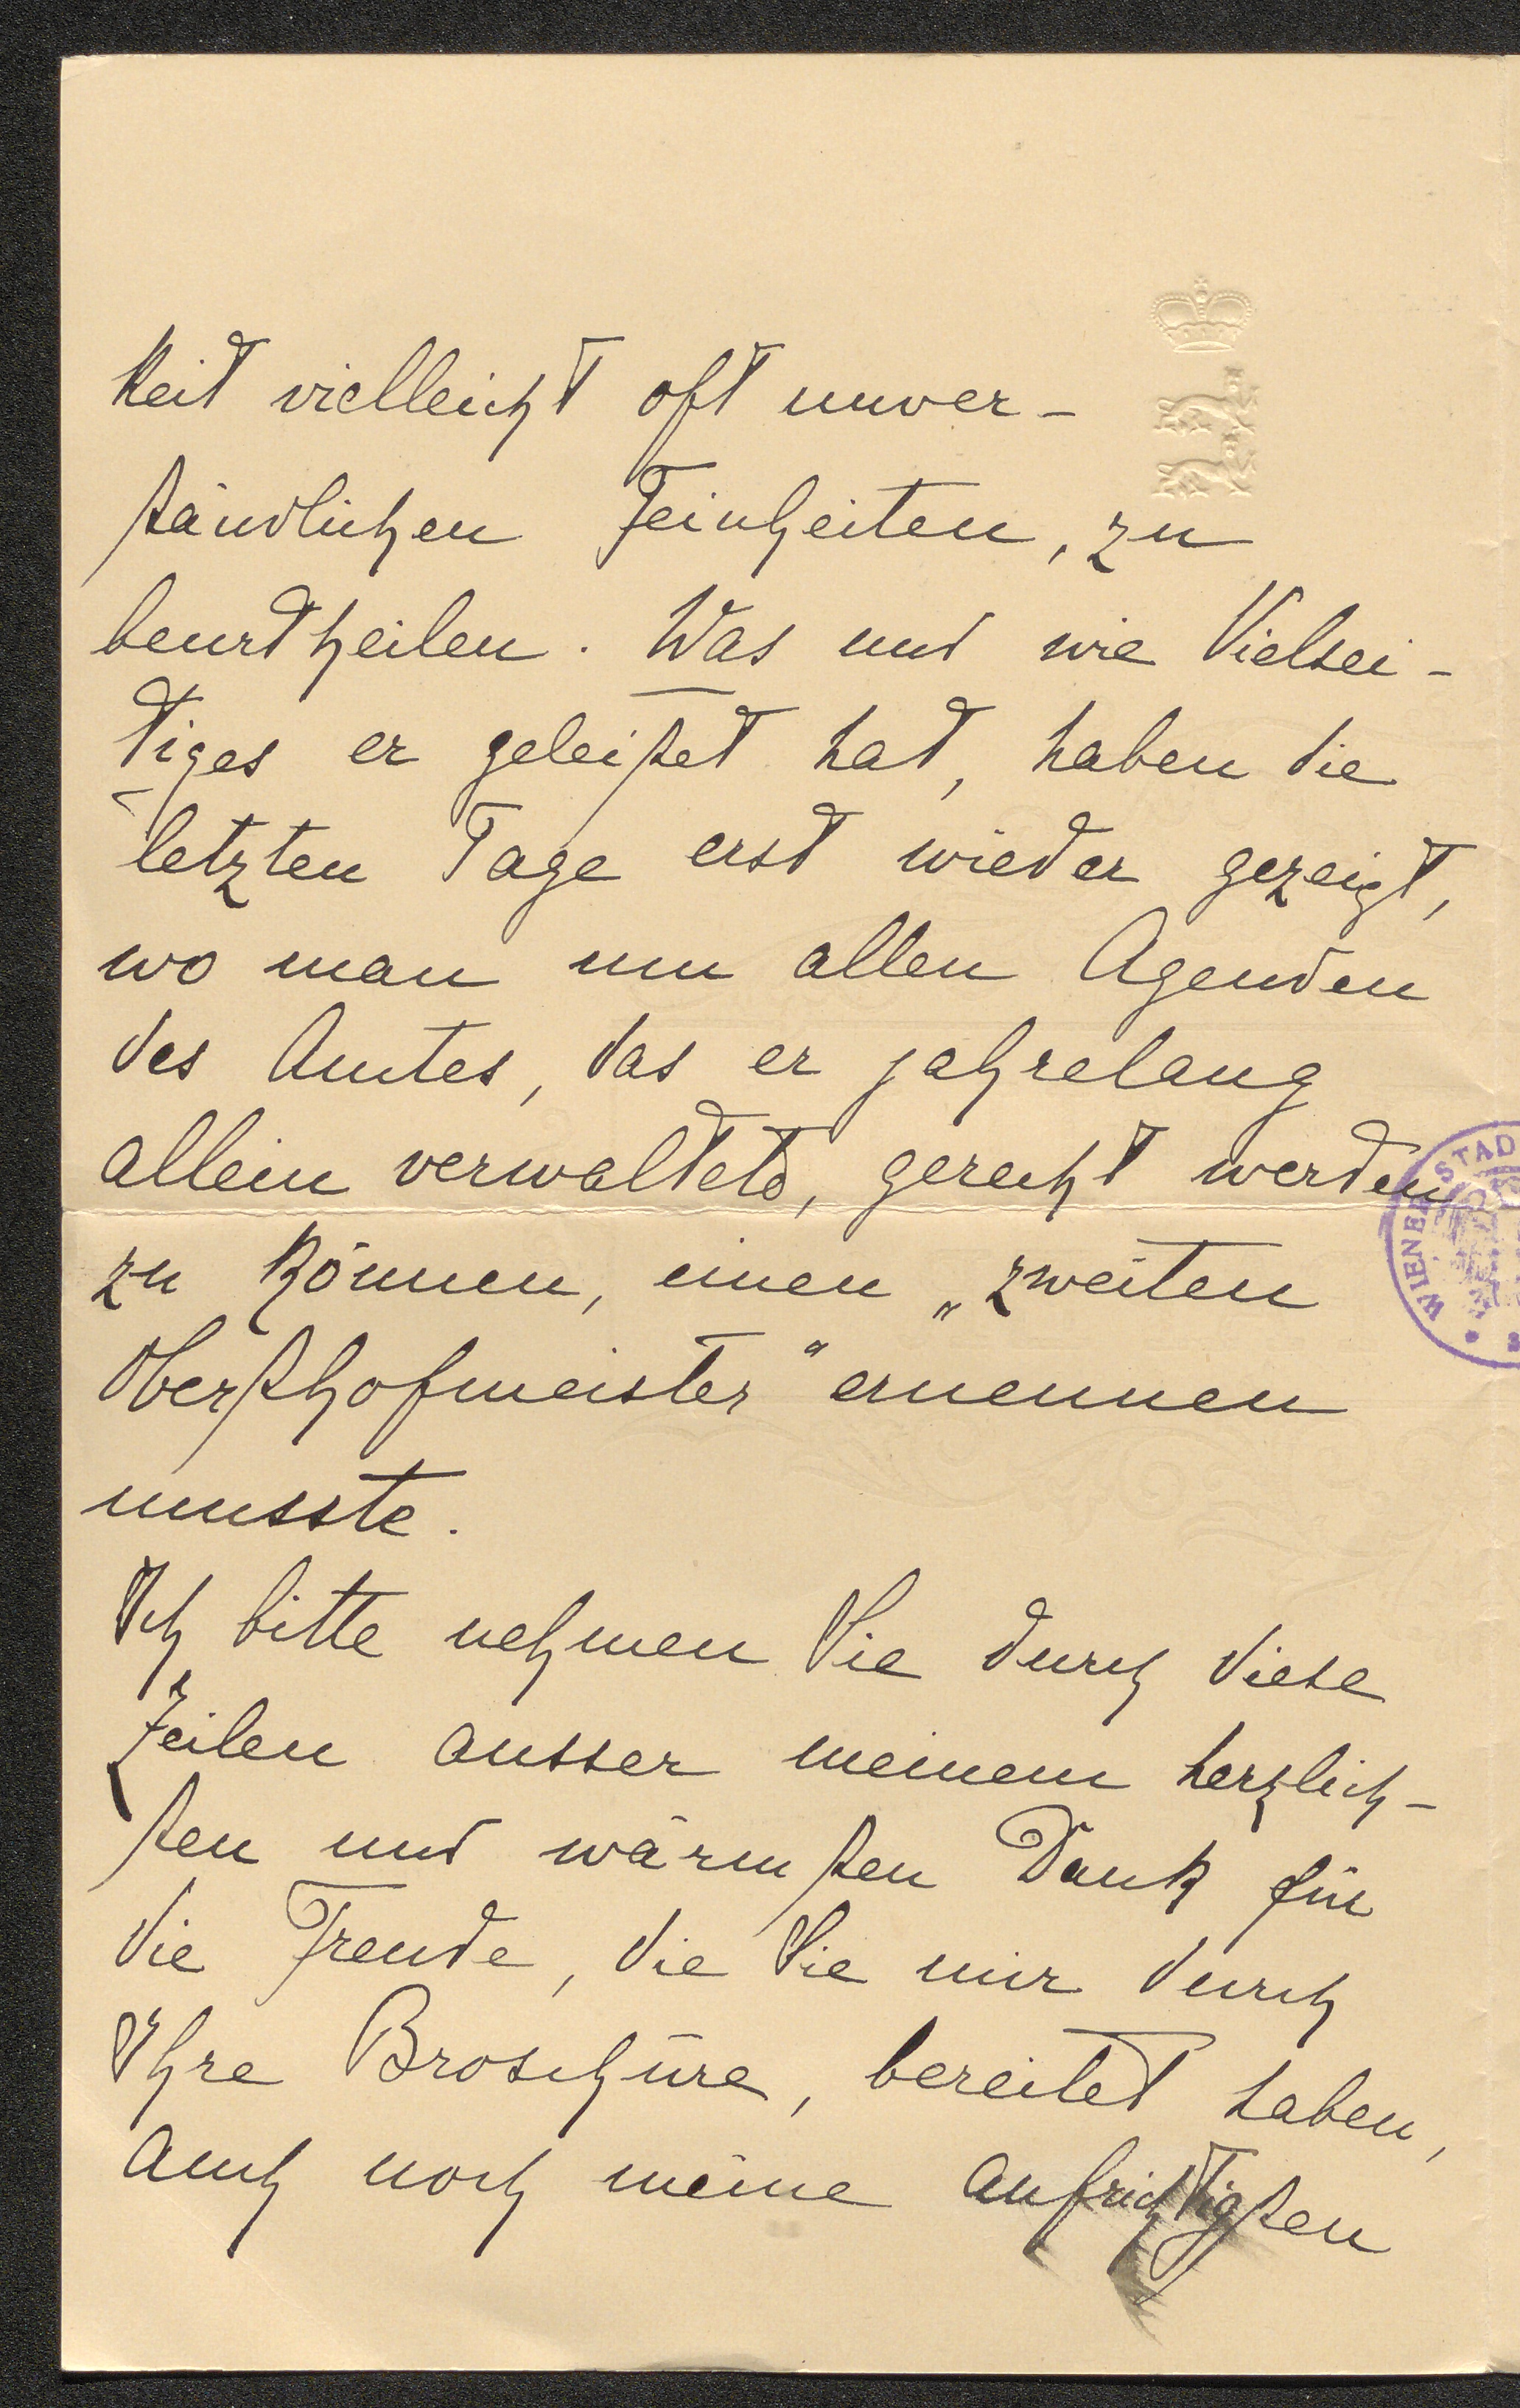 keit vielleicht oft unver-
ständlichen Feinheiten, zu
beurtheilen. Was und wie Vielsei-
tiges er geleistet hat, haben die
letzten Tage erst wieder gezeigt,
wo man um allen Agenden
des Amtes, das er jahrelang
allein verwaltete, gerecht werden
zu können, einen „zweiten
Obersthofmeister" ernennen
musste.
Ich bitte nehmen Sie durch diese
Zeilen ausser meinem herzlich-
sten und wärmsten Dank für
die Freude, die Sie mir durch
Ihre Broschüre, bereitet haben,
auch noch meine aufrichtigsten
WIENER STAD